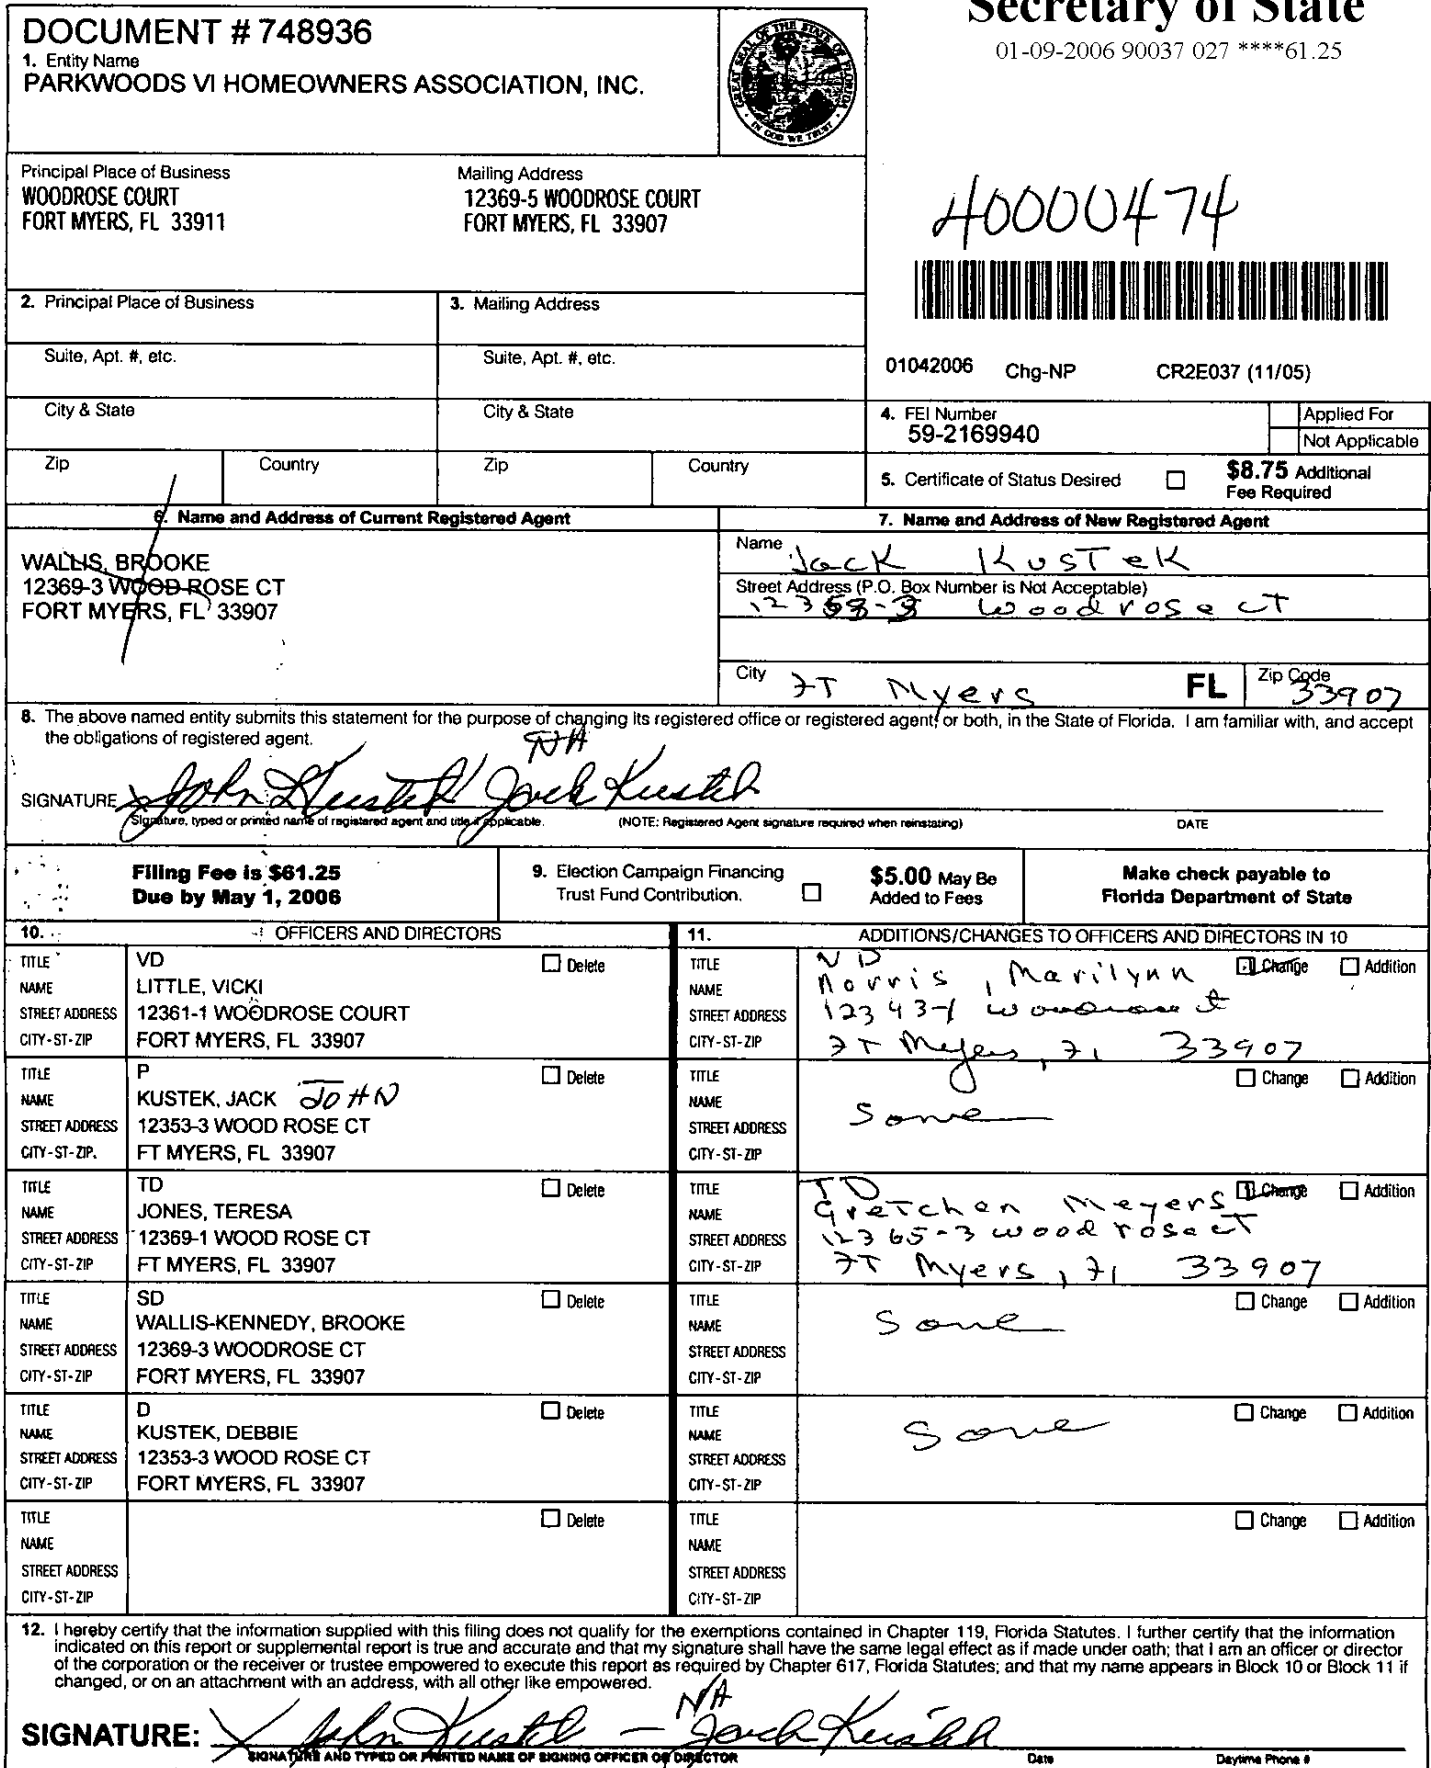 Secretary of State
01-09-2006 90037 027 ****61.25
DOCUMENT # 748936
1. Entity Name
PARKWOODS VI HOMEOWNERS ASSOCIATION, INC.
GREAT SEAL OF THE STATE OF FLORIDA
IN GOD WE TRUST
Principal Place of Business
WOODROSE COURT
FORT MYERS, FL 33911
Mailing Address
12369-5 WOODROSE COURT
FORT MYERS, FL 33907
40000474
2. Principal Place of Business
3. Mailing Address
Suite, Apt. #, etc.
Suite, Apt. #, etc.
01042006 Chg-NP CR2E037 (11/05)
City & State
City & State
4. FEI Number
59-2169940
Applied For
Not Applicable
Zip Country Zip Country
5. Certificate of Status Desired
$8.75 Additional
Fee Required
6. Name and Address of Current Registered Agent
7. Name and Address of New Registered Agent
WALLIS, BROOKE
12369-3 WOOD ROSE CT
FORT MYERS, FL 33907
Name Jack Kustek
Street Address (P.O. Box Number is Not Acceptable)
Woodrose CT
City FT Myers FL Zip Code 33907
8. The above named entity submits this statement for the purpose of changing its registered office or registered agent, or both, in the State of Florida. I am familiar with, and accept
the obligations of registered agent.
NA
SIGNATURE John Kustek Jack Kustek
Signature, typed or printed name of registered agent and title if applicable. (NOTE: Registered Agent signature required when reinstating) DATE
Filing Fee is $61.25
Due by May 1, 2006
9. Election Campaign Financing
Trust Fund Contribution.
$5.00 May Be
Added to Fees
Make check payable to
Florida Department of State
10. OFFICERS AND DIRECTORS
11. ADDITIONS/CHANGES TO OFFICERS AND DIRECTORS IN 10
TITLE VD Delete
NAME LITTLE, VICKI
STREET ADDRESS 12361-1 WOODROSE COURT
CITY-ST-ZIP FORT MYERS, FL 33907
TITLE VD Change Addition
NAME Norris, Marilynn
STREET ADDRESS 12343-1 Woodrose ct
CITY-ST-ZIP FT Myers, Fl 33907
TITLE P Delete
NAME KUSTEK, JACK JOHN
STREET ADDRESS 12353-3 WOOD ROSE CT
CITY-ST-ZIP. FT MYERS, FL 33907
TITLE Change Addition
NAME Same
STREET ADDRESS
CITY-ST-ZIP
TITLE TD Delete
NAME JONES, TERESA
STREET ADDRESS 12369-1 WOOD ROSE CT
CITY-ST-ZIP FT MYERS, FL 33907
TITLE TD Change Addition
NAME Gretchen Meyers
STREET ADDRESS 12365-3 Woodrose CT
CITY-ST-ZIP FT Myers, Fl 33907
TITLE SD Delete
NAME WALLIS-KENNEDY, BROOKE
STREET ADDRESS 12369-3 WOODROSE CT
CITY-ST-ZIP FORT MYERS, FL 33907
TITLE Change Addition
NAME Same
STREET ADDRESS
CITY-ST-ZIP
TITLE D Delete
NAME KUSTEK, DEBBIE
STREET ADDRESS 12353-3 WOOD ROSE CT
CITY-ST-ZIP FORT MYERS, FL 33907
TITLE Change Addition
NAME Same
STREET ADDRESS
CITY-ST-ZIP
TITLE Delete
NAME
STREET ADDRESS
CITY-ST-ZIP
TITLE Change Addition
NAME
STREET ADDRESS
CITY-ST-ZIP
12. I hereby certify that the information supplied with this filing does not qualify for the exemptions contained in Chapter 119, Florida Statutes. I further certify that the information
indicated on this report or supplemental report is true and accurate and that my signature shall have the same legal effect as if made under oath; that I am an officer or director
of the corporation or the receiver or trustee empowered to execute this report as required by Chapter 617, Florida Statutes; and that my name appears in Block 10 or Block 11 if
changed, or on an attachment with an address, with all other like empowered.
NA
SIGNATURE: John Kustek - Jack Kustek
SIGNATURE AND TYPED OR PRINTED NAME OF SIGNING OFFICER OR DIRECTOR Date Daytime Phone #